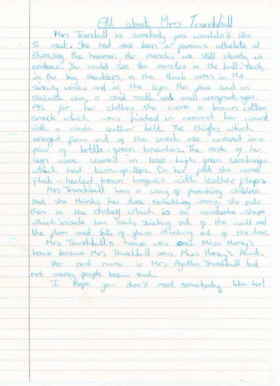 All about Mrs Trunchbull
Mrs Trunchbull is somebody you wouldn't like
to meet. She had once been a famous athelete at
throwing the hammer. Her muscles were still clearly in
evidence. You could see the muscles in the bull-neck,
in the big shoulders, in the thick arms in the
sinewy wrists and in the legs. Her face had an
obstinate chin, a cruel mouth and small arrogant eyes.
As for her clothes she wore a brown cotton
smock which was pinched in around her waist
with a wide leather belt. The thighs which
emerged from out of the smock were encased in a
pair of bottle-green breeches. The rest of her
legs were covered in knee high green stockings
which had turn-up tops. On her feet she wore
flat-heeled brown brogues with leather flaps.
Mrs Trunchbull has a way of punishing children
and she thinks has done something wrong she puts
them in the chokey which is a cupboard shape
which inside has nails sticking out of the wall and
the floor and bits of glass sticking out of the door.
Mrs Trunchbull's house was Miss Honey's
house because Mrs Trunchbull was Miss Honey's Aunt.
Her real name is Mrs Agatha Trunchbull but
not many people know that.
I hope you don't meet somebody like her!